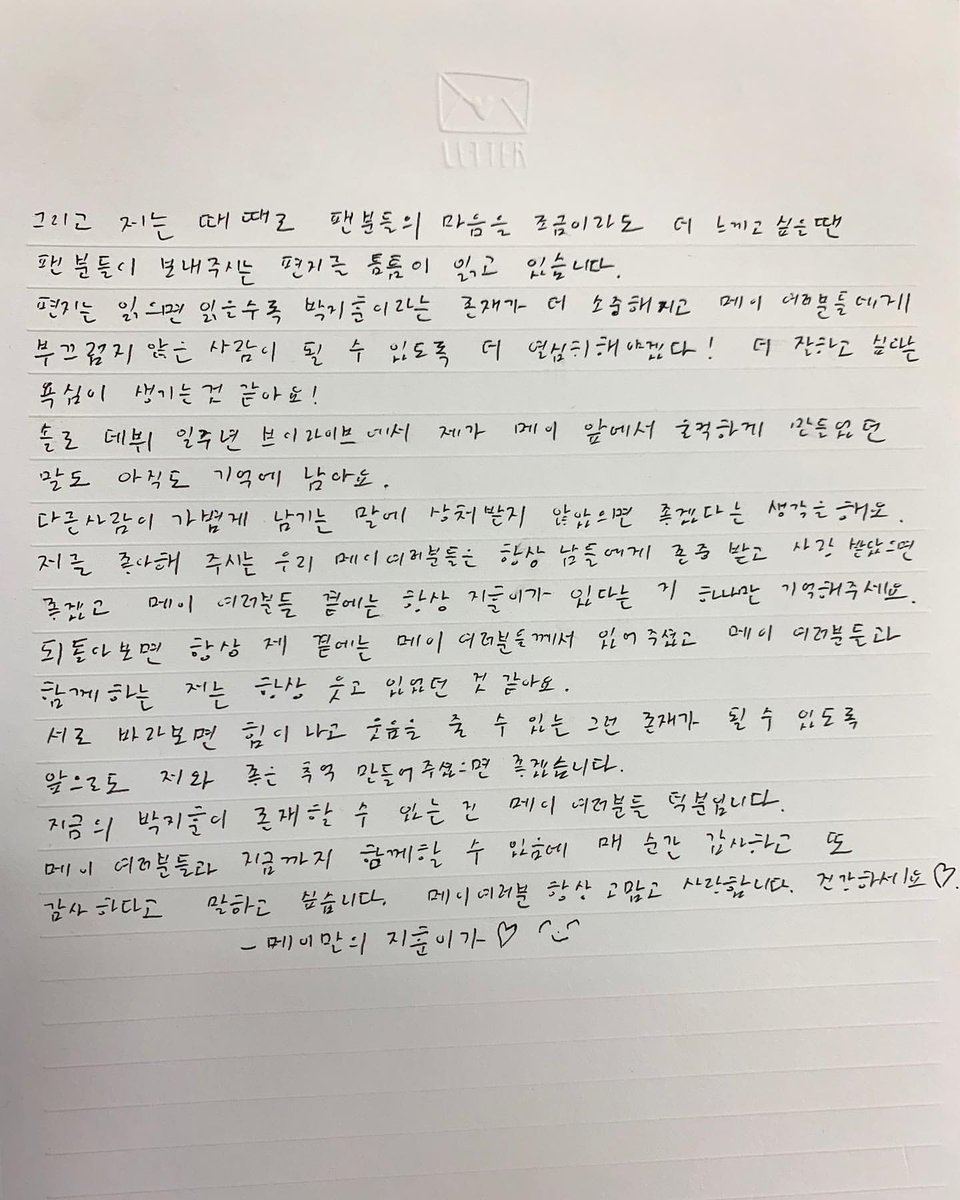 LETTER
그리고 저는 때때로 팬분들의 마음을 조금이라도 더 느끼고 싶은땐
팬분들이 보내주시는 편지를 틈틈이 읽고 있습니다.
편지는 읽으면 읽을수록 박지훈이라는 존재가 더 소중해지고 메이 여러분들에게
부끄럽지 않은 사람이 될 수 있도록 더 열심히해야겠다! 더 잘하고 싶다는
욕심이 생기는것 같아요!
솔로 데뷔 일주년 브이라이브에서 제가 메이 앞에서 호탕하게 만들었던
말도 아직도 기억에 남아요.
다른사람이 가볍게 남기는 말에 상처받지 않았으면 좋겠다는 생각을해요.
저를 좋아해 주시는 우리 메이여러분들은 항상 남들에게 존중 받고 사랑 받았으면
좋겠고 메이 여러분들 곁에는 항상 지훈이가 있다는 거 하나만 기억해주세요.
되돌아보면 항상 제 곁에는 메이 여러분들께서 있어주셨고 메이 여러분들과
함께하는 저는 항상 웃고 있었던 것 같아요.
서로 바라보면 힘이나고 웃음을 줄 수 있는 그런 존재가 될 수 있도록
앞으로도 저와 좋은 추억 만들어주셨으면 좋겠습니다.
지금의 박지훈이 존재할 수 있는 건 메이 여러분들 덕분입니다.
메이 여러분들과 지금까지 함께할 수 있음에 매 순간 감사하고 또
감사하다고 말하고 싶습니다. 메이여러분 항상 고맙고 사랑합니다. 건강하세요♡.
- 메이만의 지훈이가♡